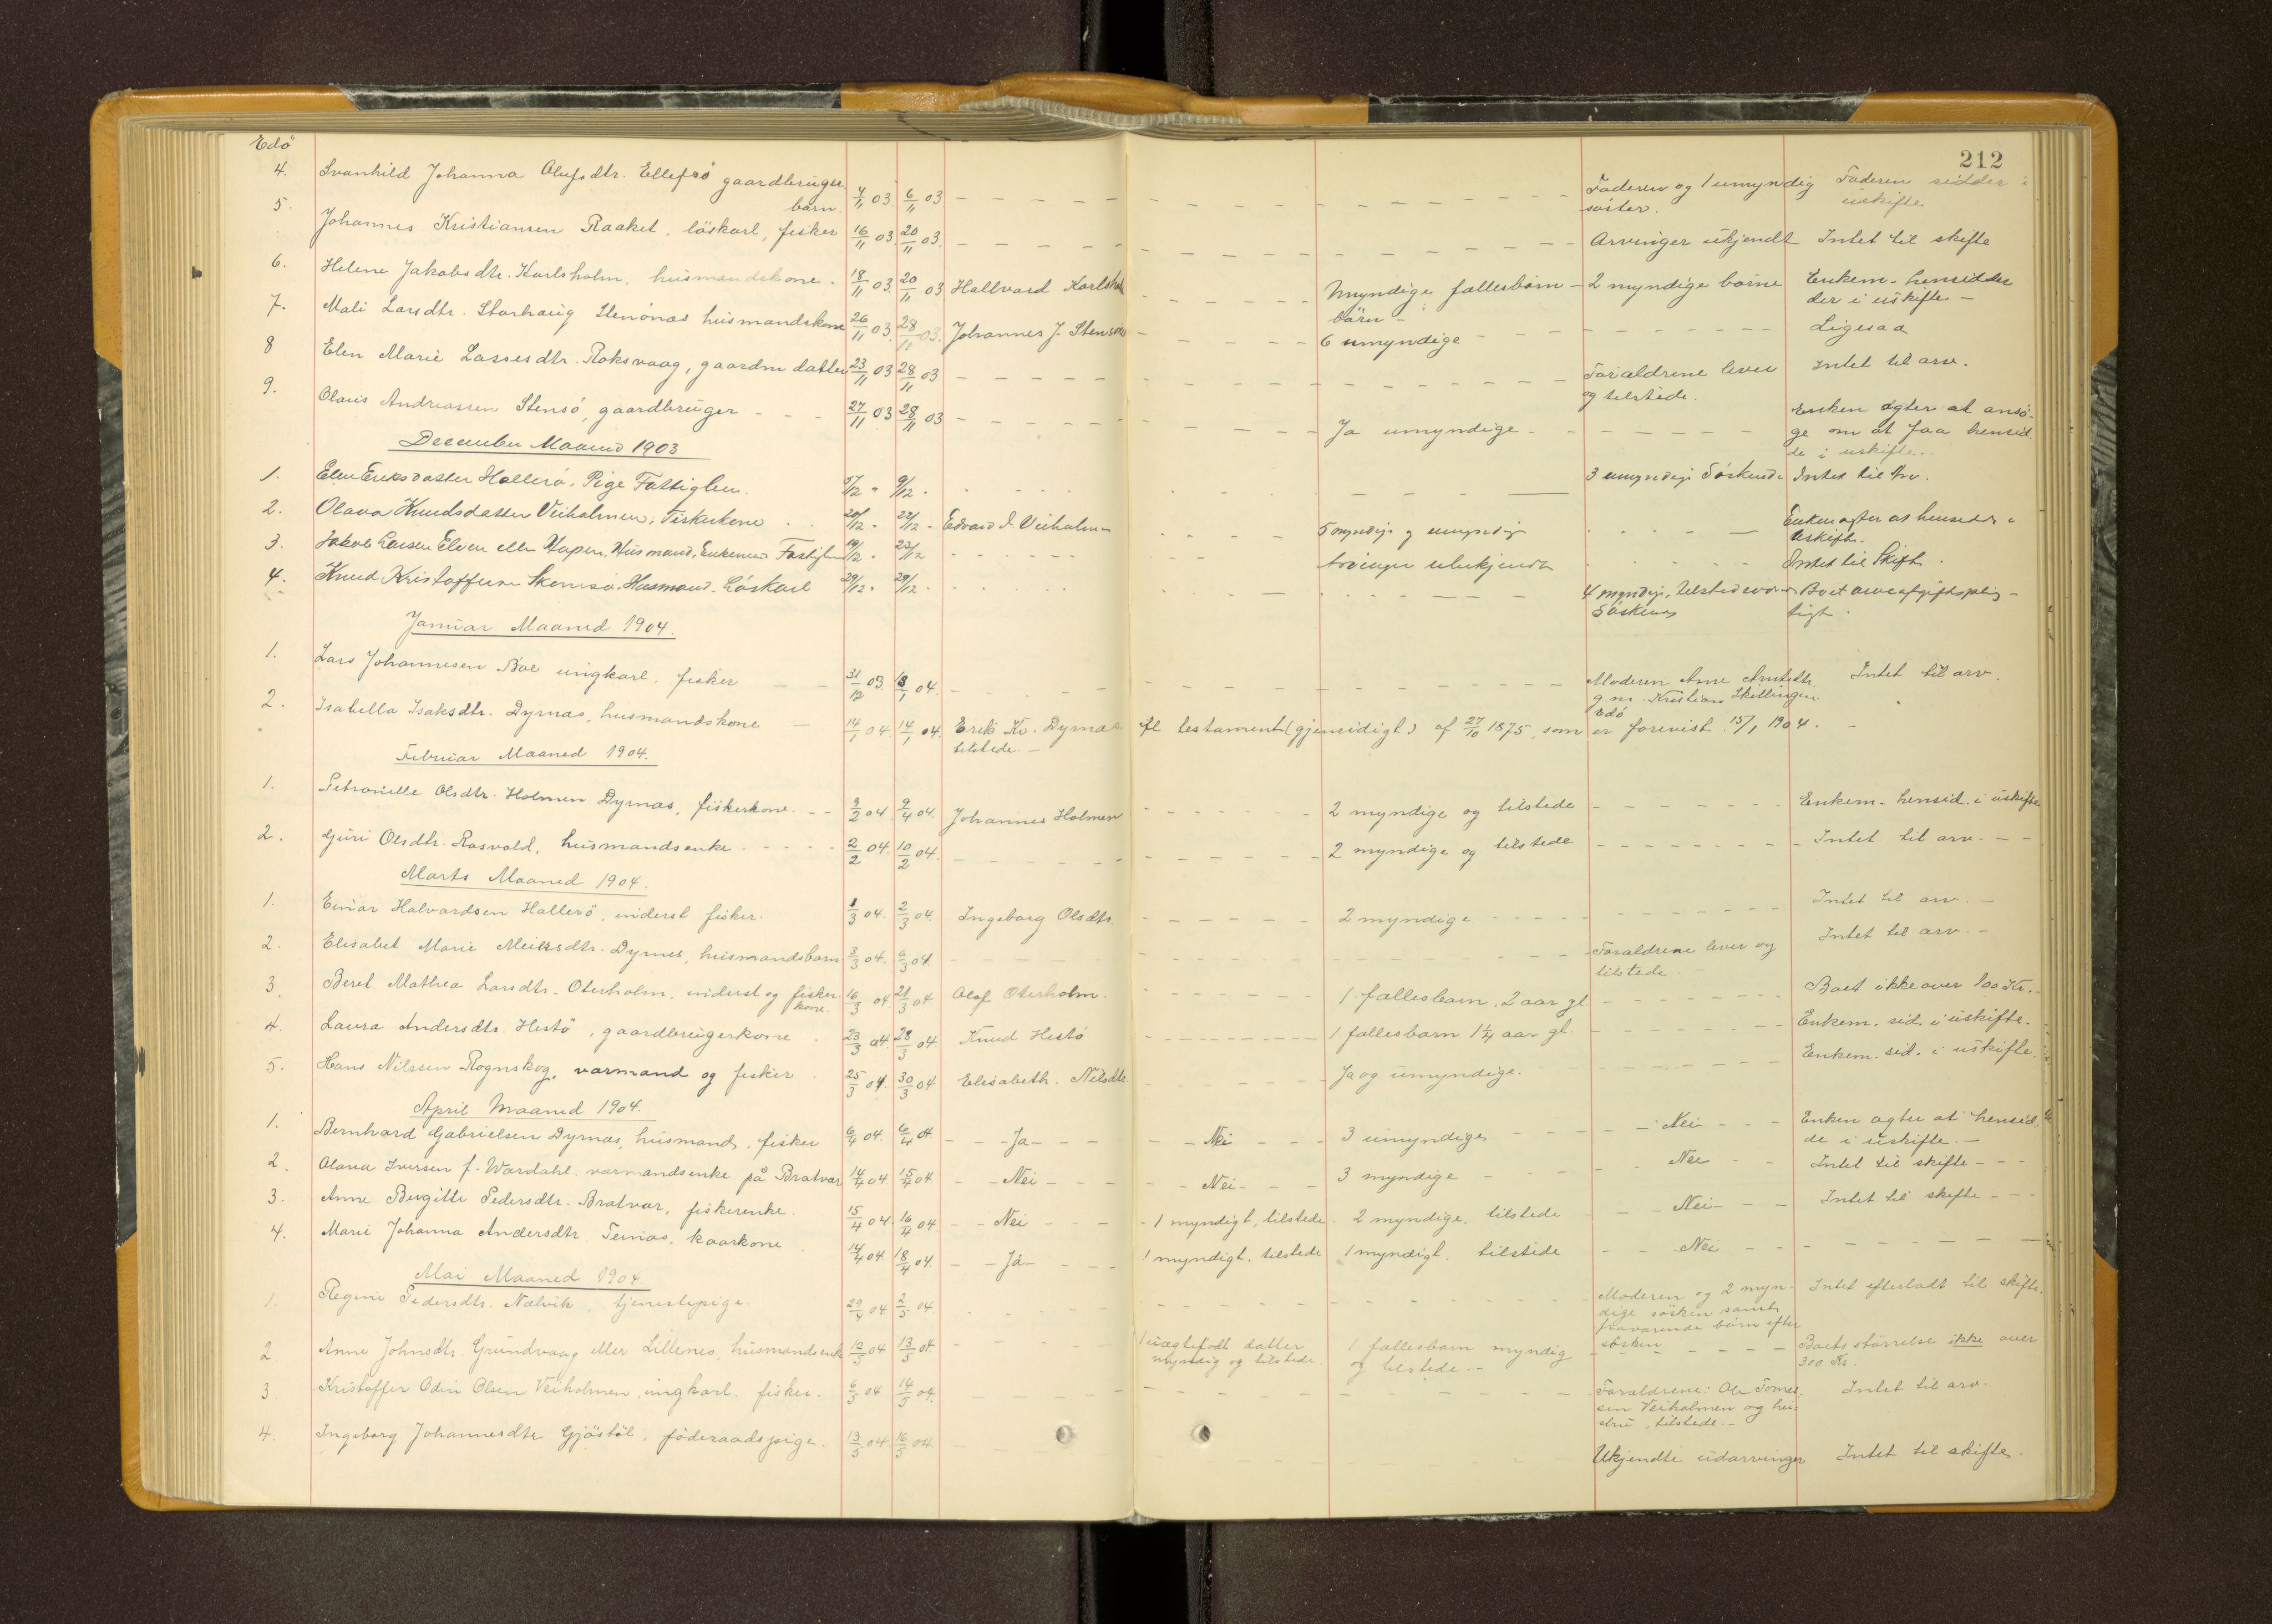 212
Edö
4. Svanhild Johanna Olufsdtr. Ellefsö gaardbruger 4/11 03 6/11 03 Faderen og 1 umyndig Faderen sidder i
barn. söster. uskifte
5. Johannes Kristiansen Raaket, löskarl, fisker 16/11 03. 20/11 03. Arvinger ukjendt Intet til skifte
6. Helene Jakobsdtr. Karlsholm, husmandskone. 18/11 03. 20/11 03 Hallvard Karlsholm Myndige fællesbörn 2 myndige börne Enkem. hensidder
börn der i uskifte
7. Mali Larsdtr. Storhaug Stenönas husmandskone 26/11 03. 28/11 03. Johannes J. 6 umyndige Ligesaa
8 Elen Marie Lassesdtr. Roksvaag, gaardm datter 23/11 03 28/11 03 Forældrene lever Intet til arv.
og tilstede.
9. Olaus Andreassen Stensö, gaardbruger 27/11 03 28/11 03 Ja umyndige Enken agter at ansö-
ge om at faa hensid-
de i uskifte.
December Maaned 1903
1. Elen Eriksdatter Hallerö, Pige Fattiglem. 5/12 " 9/12 . 3 umyndige Söskende Intet til Arv.
2. Olava Knudsdatter Veiholmen, Fiskerkone 20/12 " 22/12 " Edvard J. Veiholmen 5 myndige og umyndig Enken agter at hensidde i
uskifte.
3. Jakob Larsen Elven eller Hapen, Husmand, Enkemand Fattiglem 19/12 . 22/12 Arvinger ubekjendte Intet til Skifte.
4. Knud Kristoffersen Skomsö, Husmand, Löskarl 29/12 . 29/12 . 4 myndige, tilstedeværende Boet arveafgiftsplig-
Söskende tigt.
Januar Maaned 1904.
1. Lars Johannesen Böe ungkarl, fisker 31/12 03. 13/1 04. Moderen Ane Arntsdtr. Intet til arv.
g m. Kristian Skellingen
Edö
2. Isabella Isaksdtr. Dyrnas, husmandskone 14/1 04. 14/1 04. Erik Kr. Dyrnas fl testament (gjensidigt) af 27/10 1875, som er forevist 15/1 1904.
tilstede.
Februar Maaned 1904.
1. Petronelle Olsdtr. Holmen Dyrnas, fiskerkone 9/2 04. 9/4 04. Johannes Holmen 2 myndige og tilstede Enkem. hensid. i uskifte
2. Guri Olsdtr. Rosvold, husmandsenke 2/2 04. 10/2 04. 2 myndige og tilstede Intet til arv.
Marts Maaned 1904.
1. Einar Halvardsen Hallerö, inderst fisker. 1/3 04. 2/3 04. Ingeborg Olsdtr. 2 myndige Intet til arv.
2. Elisabet Marie Meiersdtr. Dyrnes, husmandsbarn 3/3 04. 6/3 04. Forældrene lever og Intet til arv.
tilstede.
3. Beret Mathea Larsdtr. Oterholm, inderst og fisker 16/3 04 21/3 04 Olaf Oterholm. 1 fællesbarn, 2 aar gl. Boet ikke over 100 Kr.
kone.
4. Laura Andersdtr. Hestö, gaardbrugerkone 23/3 04 28/3 04. Knud Hestö 1 fællesbarn 1 1/4 aar gl. Enkem. sid. i uskifte.
5. Hans Nilssen Rognskog, varmand og fisker 25/3 04. 30/3 04 Elisabeth. Nilsdtr. Ja og umyndige. Enkem. sid. i uskifte.
April Maaned 1904.
1. Bernhard Gabrielsen Dyrnas, husmand, fisker 6/4 04. 6/4 04. Ja Nei 3 umyndige Nei Enken agter at hensid-
de i uskifte.
2. Olava Iversen f. Wardahl. varmandsenke på Bratvær 14/4 04 15/4 04 Nei Nei 3 myndige Nei Intet til skifte
3. Anne Birgitte Pedersdtr. Bratvær, fiskerenke. 15/4 04. 16/4 04 Nei 1 myndigt, tilstede 2 myndige, tilstede Nei Intet til skifte
4. Marie Johanna Andersdtr. Teinas, kaarkone 14/4 04 18/4 04. Ja 1 myndigt, tilstede 1 myndigt, tilstede Nei
Mai Maaned 1904
1. Regine Pedersdtr. Nalvik, tjenestepige. 29/4 04 2/5 04. Moderen og 2 myn- Intet efterladt til skifte.
dige söskn samt
fraværende börn efter
söskn
2 Anne Johnsdtr. Grundvaag eller Lillenes, husmandsenke 12/5 04 13/5 04. 1 uægtefödt datter 1 fællesbarn myndig Boets störrelse ikke over
myndig og tilstede. og tilstede. 300 Kr.
3 Kristoffer Odin Olsen Veiholmen, ungkarl. fisker. 6/5 04 14/5 04. Forældrene: Ole Intet til arv.
sen Veiholmen og hu-
stru, tilstede.
4. Ingeborg Johannesdtr Gjöstöl, föderaadspige. 13/5 04. 16/5 04 Ukjendte udarvinger Intet til skifte.